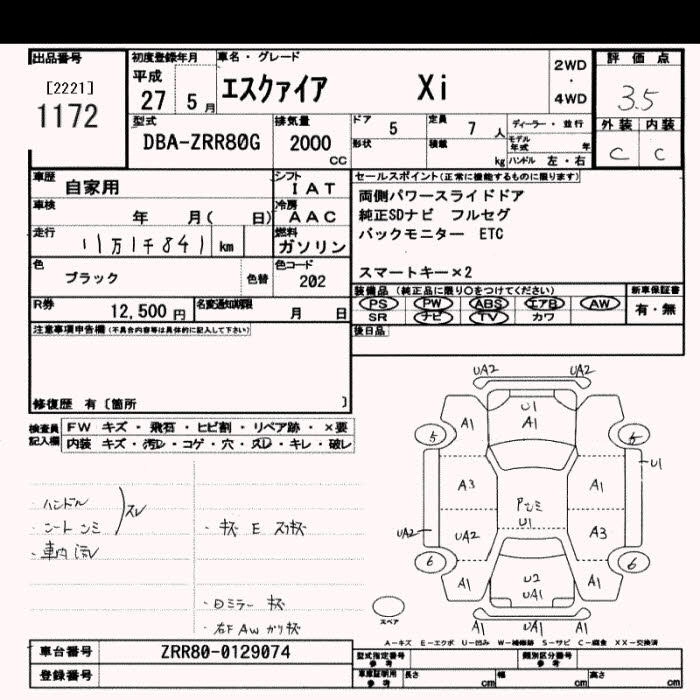 出品番号 初度登録年月 車名・グレード 2WD・4WD 評価点
[2221]
1172 平成 27 5月 エスクァイア Xi 3.5
型式 排気量 ドア 5 定員 7人 ディーラー・並行 外装 内装
DBA-ZRR80G 2000CC 形状 積載 kg モデル年式 年 ハンドル 左・右 C C
車歴 自家用 シフト IAT セールスポイント(正常に機能するものに限ります)
車検 年 月( 日) 冷房 AAC 両側パワースライドドア
走行 11万1千841 km 燃料 ガソリン 純正SDナビ フルセグ
バックモニター ETC
色 ブラック 色替 色コード 202 スマートキー×2
R券 12,500円 名変通知期限 月 日 装備品(純正品に限り○をつけてください) 新車保証書
PS PW ABS エアB AW 有・無
SR ナビ TV カワ
注意事項申告欄(不具合内容等は具体的に記入して下さい) 後日品
修復歴 有〔箇所 〕
検査員記入欄 FW キズ・飛石・ヒビ割・リペア跡・×要
内装 キズ・汚レ・コゲ・穴・スレ・キレ・破レ
・ハンドル
スレ
・車内 汚レ
・Dミラー
・右F AW ガリ
UA2 UA2
A1 U1 A1 A1
5 5
U1
A3 A1
U1
UA2 UA2 A3
6 6
A1 U2 UA1 A1
A1 UA1 A1
スペア
A-キズ E-エクボ U-凹み W-補修跡 S-サビ C-腐食 XX-交換済
車台番号 ZRR80-0129074 型式指定番号 参考 類別区分番号 参考
登録番号 車庫証明用 参考 長さ cm 幅 cm 高さ cm